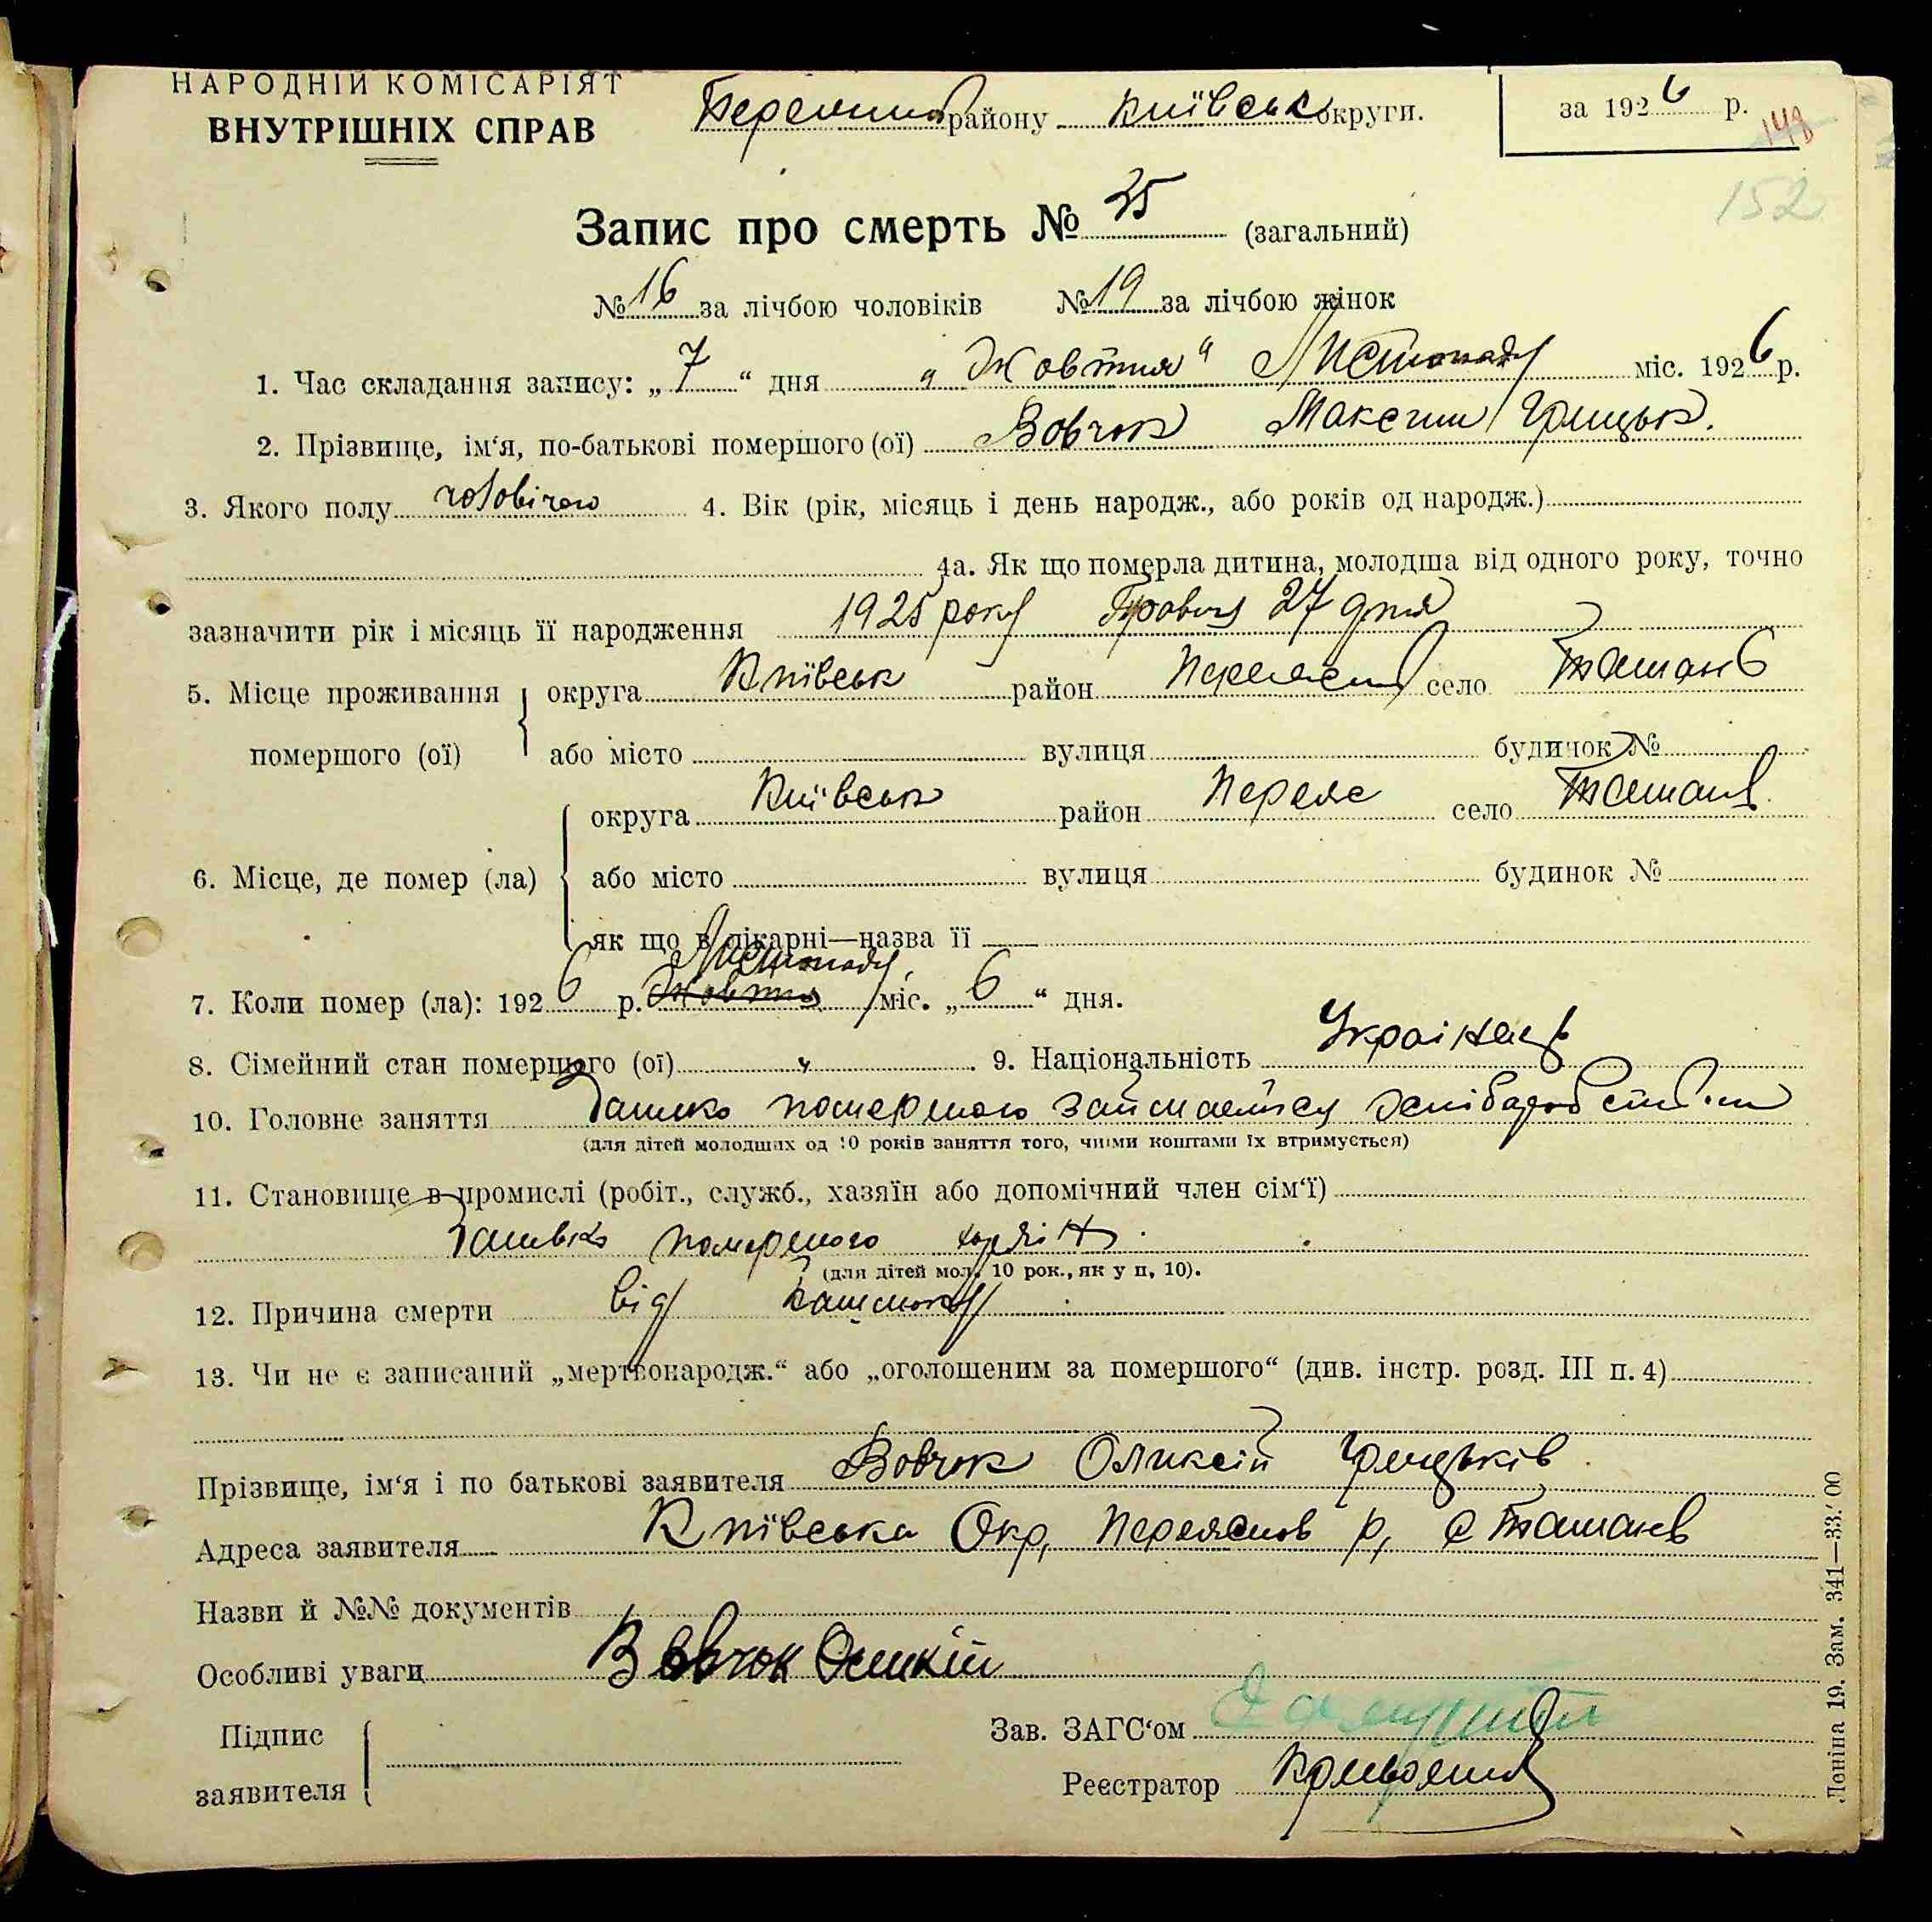 НАРОДНІЙ КОМІСАРІЯТ
ВНУТРІШНІХ СПРАВ
району Київськ округи.
за 1926 р.
148
152
Запис про смерть № 35 (загальний)
№ 16 за лічбою чоловіків № 19 за лічбою жінок
1. Час складання запису: „7“ дня „Жовтня“ Листопаду міс. 1926 р.
2. Прізвище, ім‘я, по-батькові помершого (ої) Вовчок Максим Грицьк.
3. Якого полу чоловічого 4. Вік (рік, місяць і день народж., або років од народж.)
4а. Як що померла дитина, молодша від одного року, точно
зазначити рік і місяць її народження 1925 року 27 дня
5. Місце проживання помершого (ої) округа Київськ район село Ташань
або місто вулиця будинок №
6. Місце, де помер (ла) округа Київськ район Переяс село Ташань
або місто вулиця будинок №
як що в лікарні—назва її
Листопаду
7. Коли помер (ла): 1926 р. Жовтня міс. „6“ дня.
8. Сімейний стан помершого (ої) 9. Національність Українець
10. Головне заняття Батько помершого займається
(для дітей молодших од 10 років заняття того, чиїми коштами їх втримується)
11. Становище в промислі (робіт., служб., хазяїн або допомічний член сім‘ї)
Батько помершого хазяїн.
(для дітей мол. 10 рок., як у п, 10).
12. Причина смерти від кашлюку
13. Чи не є записаний „мертвонародж.“ або „оголошеним за помершого“ (див. інстр. розд. III п. 4)
Прізвище, ім‘я і по батькові заявителя Вовчок Оликсій Грицьків
Адреса заявителя Київська Окр, Переяслов р, с Ташань
Назви й №№ документів
Особливі уваги Вовчок
Підпис заявителя
Зав. ЗАГС‘ом
Реєстратор
Леніна 19. Зам. 341—33.‘00